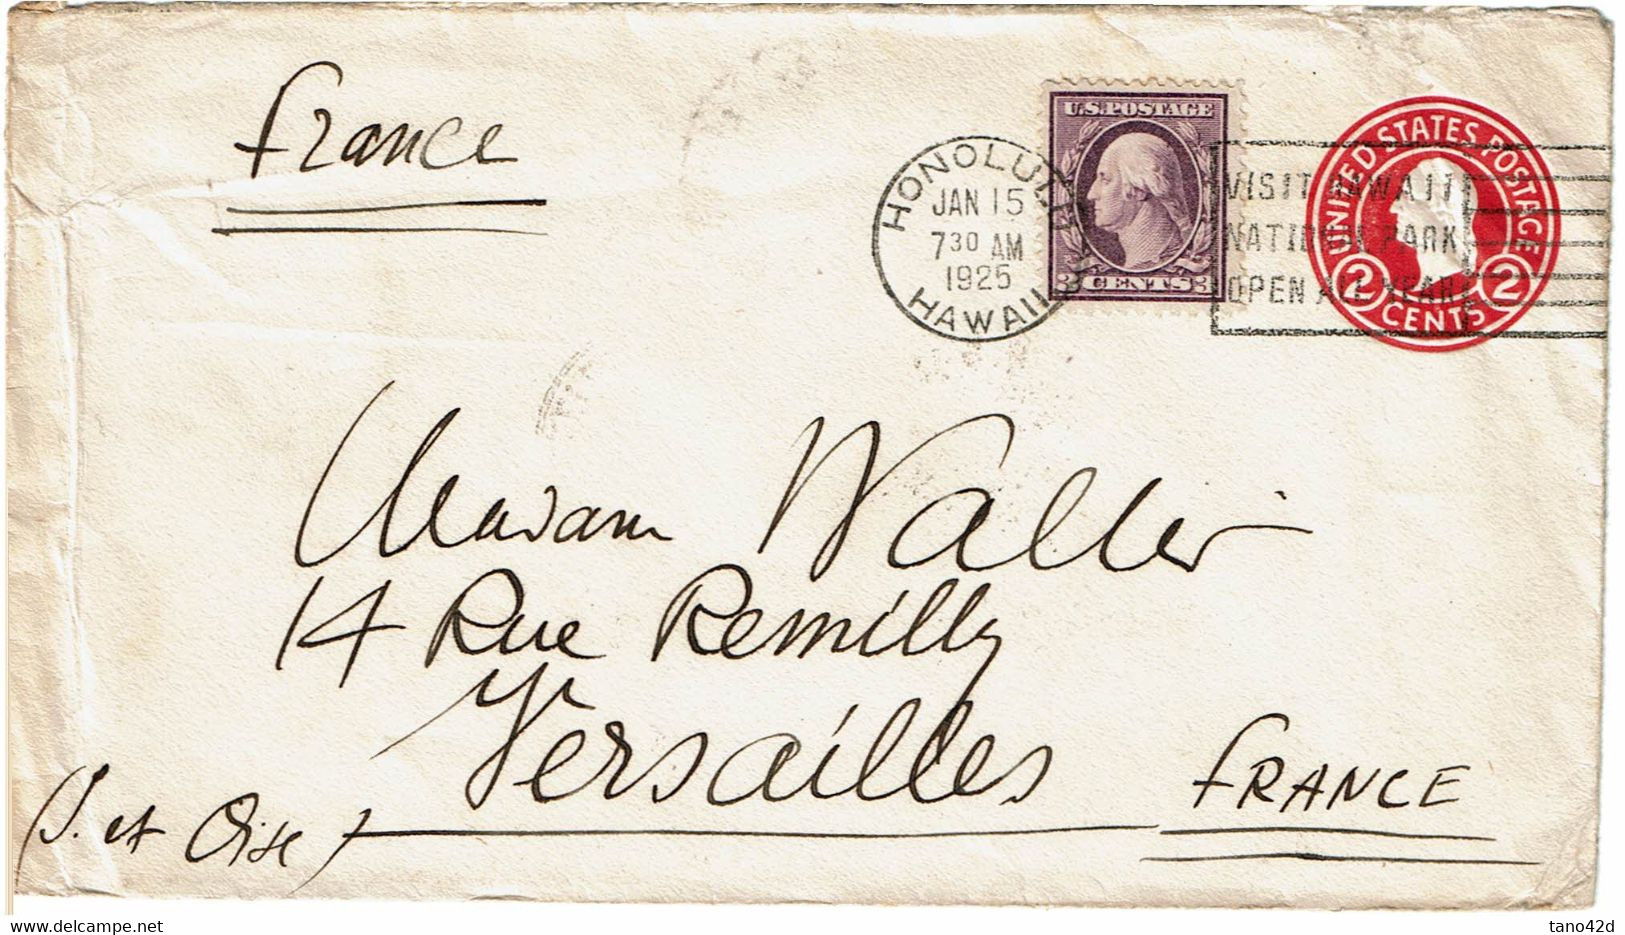 France
HONOLULU
JAN 15
7 30 AM
1925
HAWAII
U.S. POSTAGE
3 CENTS 3
VISIT HAWAII
NATIONAL PARK
OPEN ALL YEAR
UNITED STATES POSTAGE
2 2
CENTS
Madame Waller
14 Rue Remilly
Versailles
FRANCE
(S. et Oise)
tano42d